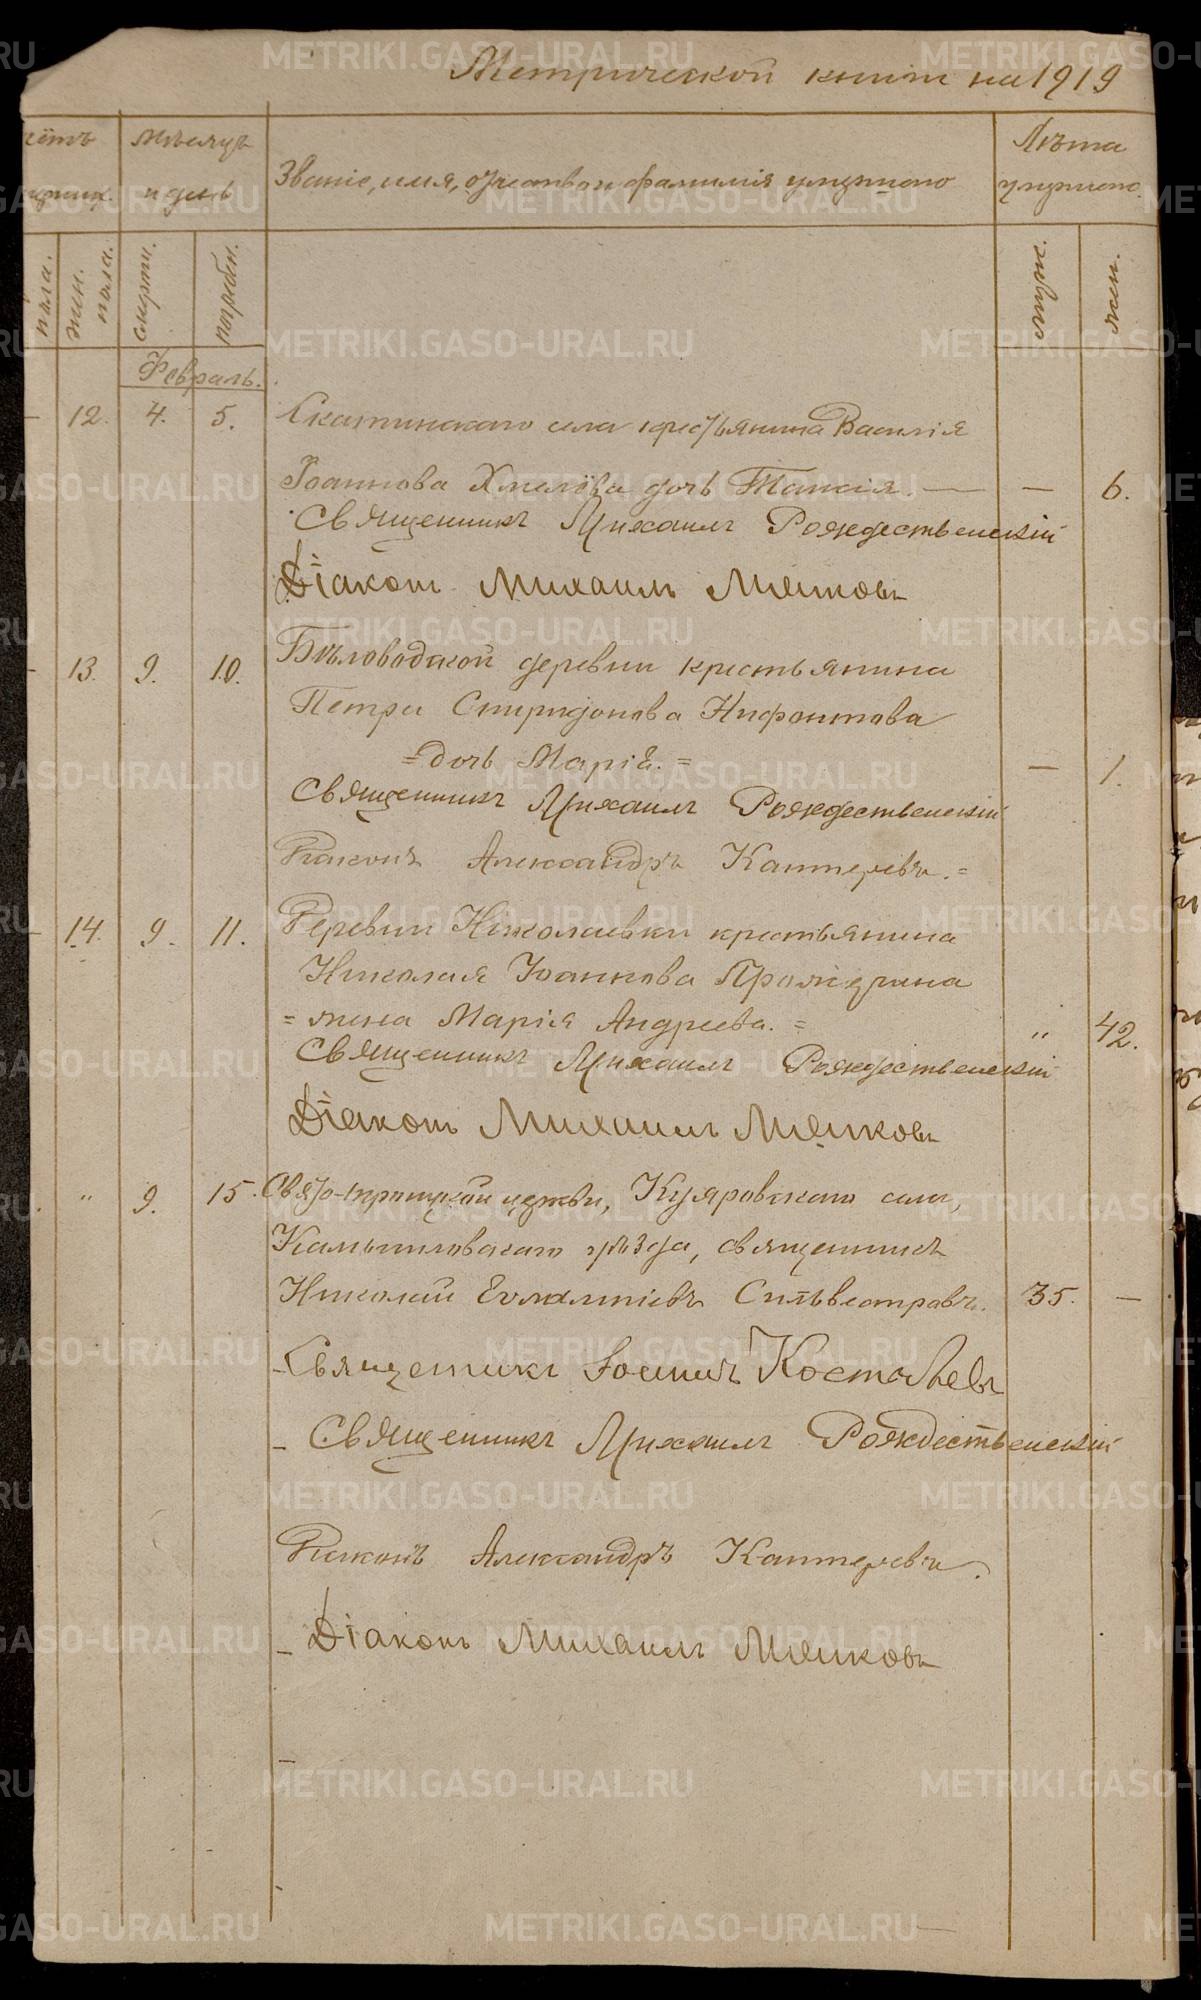 Метрической книги на 1919
счётъ
умерших.
Мѣсяцъ
и день
Званіе, имя, отчество и фамилія умершаго
Лѣта
умершаго.
пола.
жен.
пола.
смерти.
погребен.
муж.
жен.
Февраль.
— 12. 4. 5. Скатинскаго села крестьянина Василія
Іоаннова Хмелёва дочь Таисія. — — 6.
Священникъ Михаилъ Рождественскій
Діаконъ Михаилъ Мяшковъ
— 13. 9. 10. Бѣловодской деревни крестьянина
Петра Спиридонова Нифонтова
= дочь Марія. = — 1.
Священникъ Михаилъ Рождественскій
Діаконъ Александръ Каптеревъ. =
— 14. 9. 11. Деревни Николаевки крестьянина
Николая Іоаннова
= жена Марія Андреева. = " 42.
Священникъ Михаилъ Рождественскій
Діаконъ Михаилъ Мяшковъ
" 9. 15. Свято-Троицкой церкви, Куяровскаго села,
Камышловскаго уѣзда, священникъ
Николай Евлампіевъ Сильвестровъ. 35. —
Священникъ Іоаннъ
Священникъ Михаилъ Рождественскій
Діаконъ Александръ Каптеревъ.
Діаконъ Михаилъ Мяшковъ
METRIKI.GASO-URAL.RU